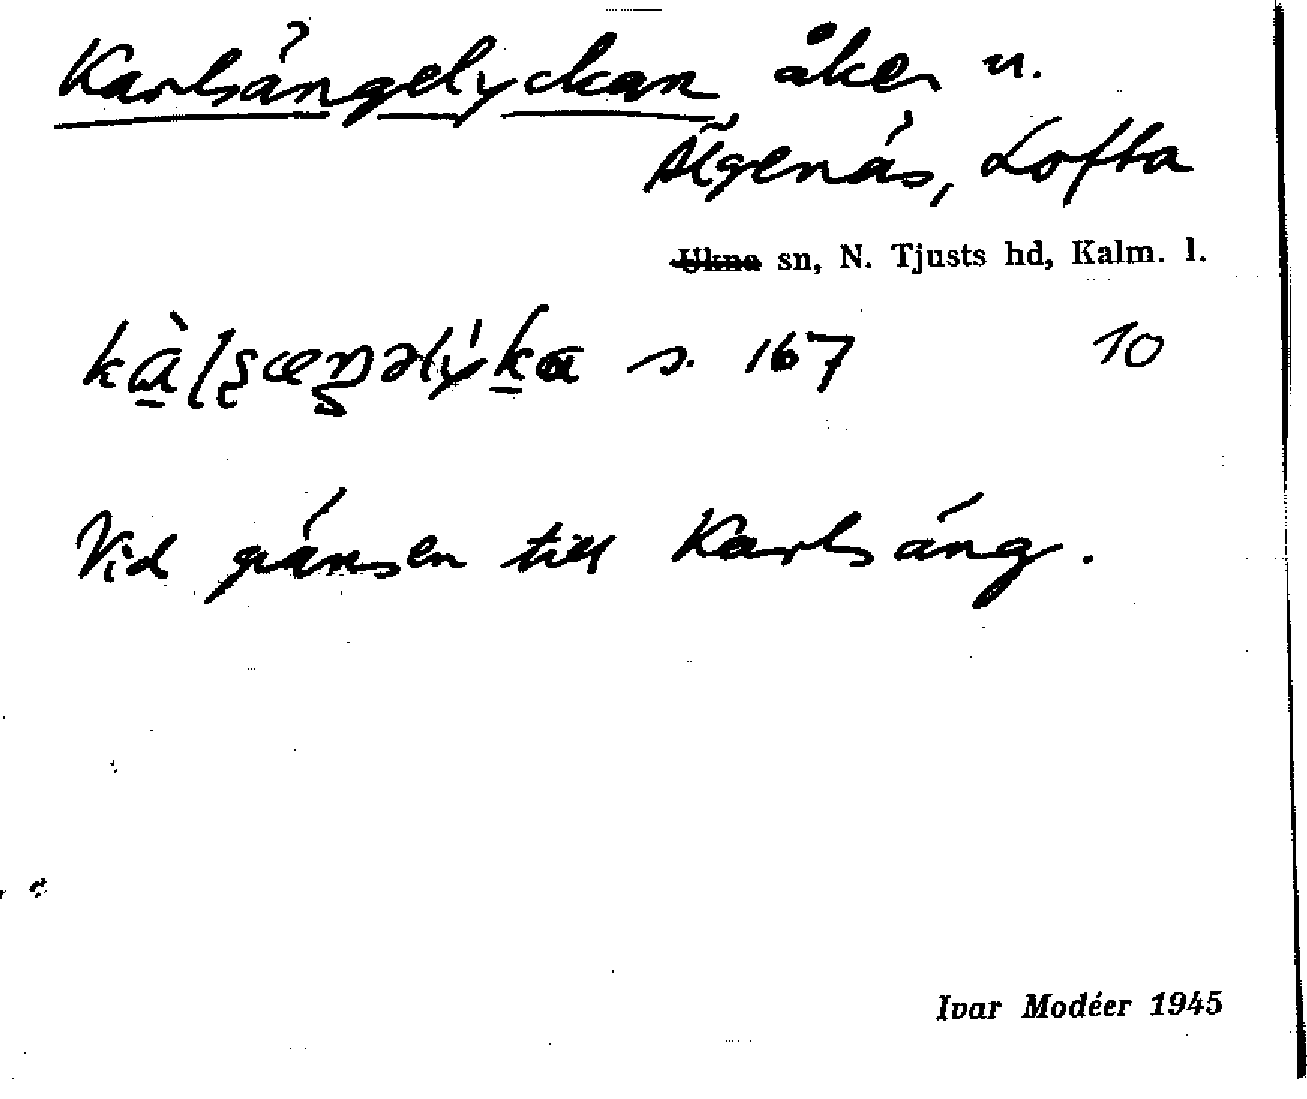 Karlsängelyckan åker u.
Älgenäs, Lofta
Ukna sn, N. Tjusts hd, Kalm. l.
s. 167 10
Vid gränsen till Karlsäng.
Ivar Modéer 1945